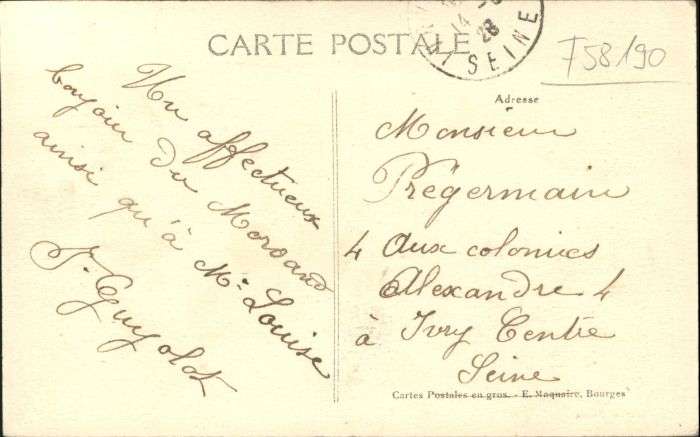 CARTE POSTALE
14 - 
28
SEINE
F58190
Adresse
Un affectueux
bonjour du Morvand
ainsi qu'à Me Louise
Guyolot
Monsieur
Prégermain
4 aux colonies
Alexandre 4
à Ivry Centre
Seine
Cartes Postales en gros. - E. Maquaire, Bourges